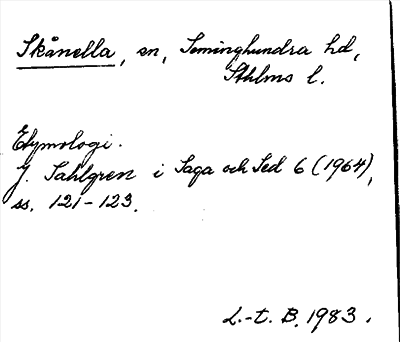 Skånella, sn, Seminghundra hd,
Sthlms l.
Etymologi.
J. Sahlgren i Saga och Sed 6 (1964),
ss. 121-123.
L.-t. B. 1983.